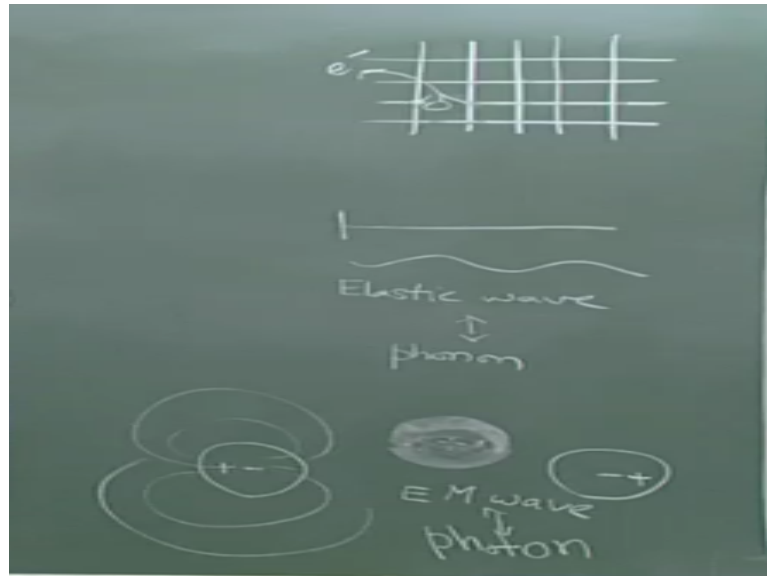 e-
Elastic wave
↕
phonon
+ -
- +
EM wave
↕
photon